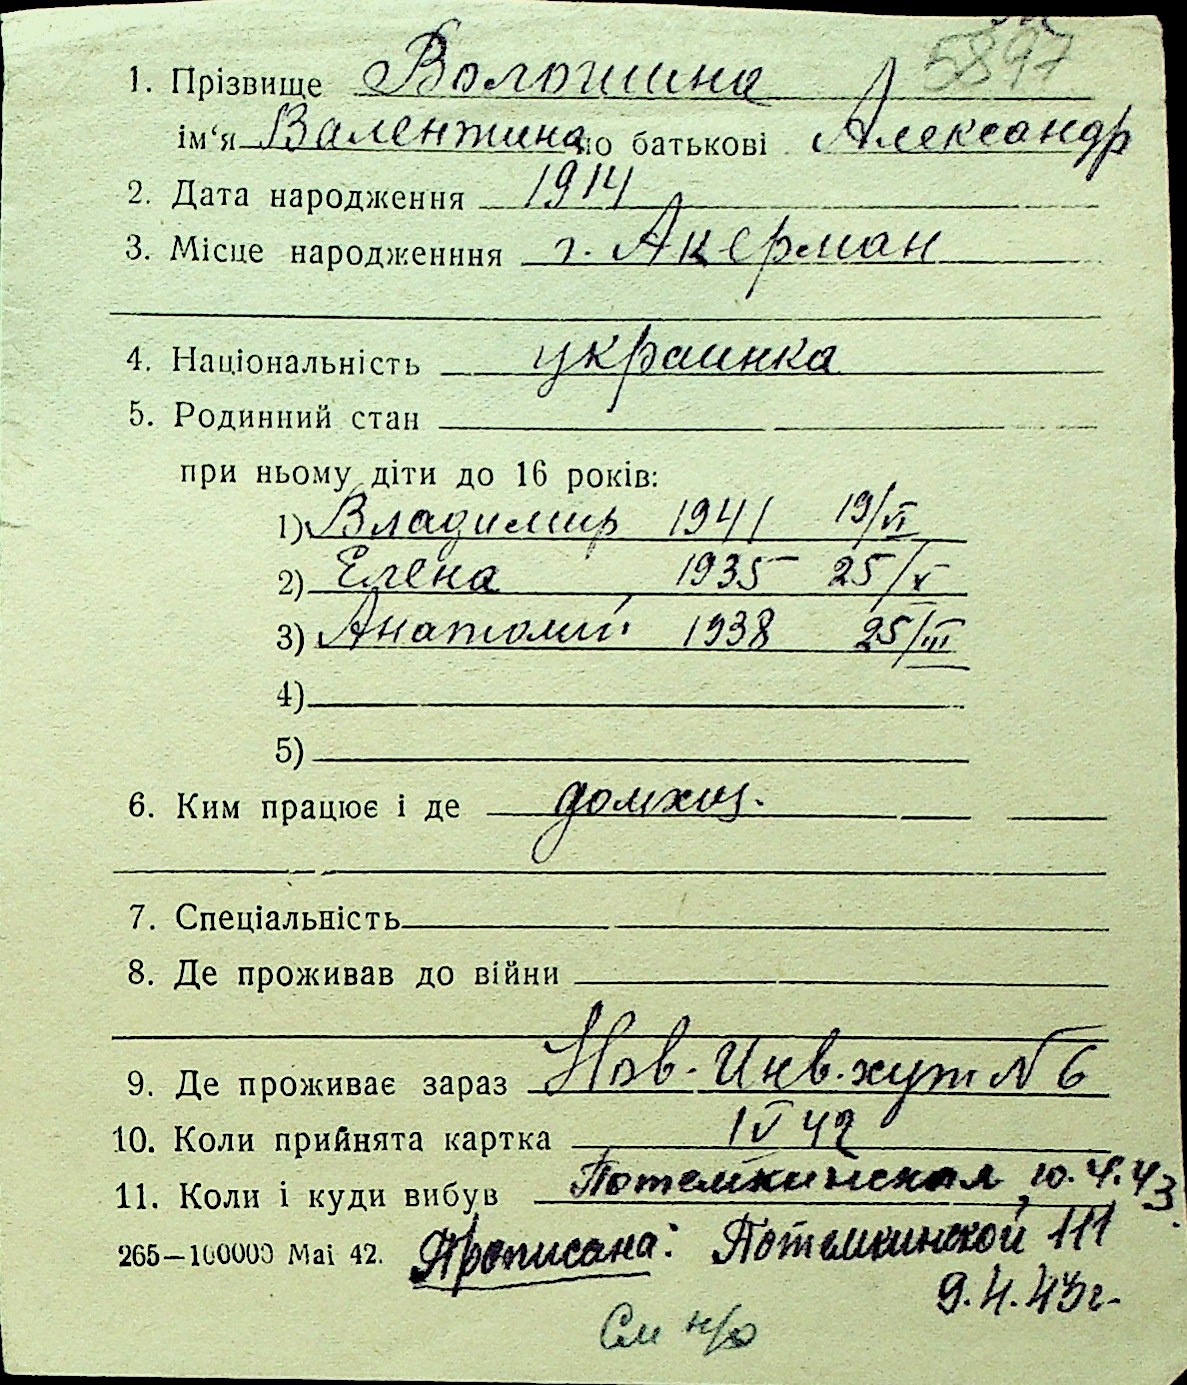 5897
1. Прізвище Волошина
ім'я Валентина по батькові Александр
2. Дата народження 1914
3. Місце народженння г. Акерман
4. Національність украинка
5. Родинний стан
при ньому діти до 16 років:
1) Владимир 1941 19/VI
2) Елена 1935 25/V
3) Анатолий 1938 25/III
4)
5)
6. Ким працює і де домхоз.
7. Спеціальність
8. Де проживав до війни
9. Де проживає зараз Нов. Инв. хут № 6
10. Коли прийнята картка 1 V 42
11. Коли і куди вибув Потемкинская, 10.4.43
265—100000 Маі 42. Прописана: Потемкинской 111
9.4.43 г.
См н/о